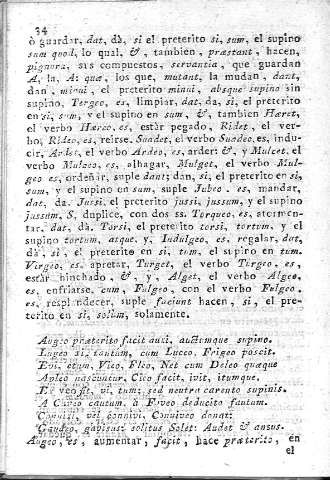 34
ò guardar, dat, dà, si el preterito si, sum, el supino
sum quod, lo qual, &, tambien, præstant, hacen,
pignora, sus compuestos, servantia, que guardan
A, la, A: quæ, los que, mutant, la mudan, dant,
dan, minui, el preterito minui, absque supino sin
supino, Tergeo, es, limpiar, dat, da, si, el preterito
en si, sum, y el supino en sum, &, tambien Hæret,
el verbo Hæreo, es, estàr pegado, Ridet, el ver-
bo, Rideo, es, reirse. Suadet, el verbo Suadeo, es, indu-
cir, Ardet, el verbo Ardeo, es, arder: &, y Mulcet, el
verbo Mulceo, es, alhagar, Mulget, el verbo Mul-
geo es, ordeñar, suple dant; dan, si, el preterito en si,
sum, y el supino en sum, suple Jubeo, es, mandar,
dat, da, Jussi, el preterito jussi, jussum, y el supino
jussum, S, duplice, con dos ss. Torqueo, es, atormen-
tar, dat, dà, Torsi, el preterito torsi, tortum, y el
supino tortum, atque, y, Indulgeo, es, regalar, dat,
dà, si, el preterito en si, tum, el supino en tum.
Virgeo, es, apretar, Turget, el verbo Turgeo, es,
estàr hinchado, &, y, Alget, el verbo Algeo,
es, enfriarse, cum, Fulgeo, con el verbo Fulgeo,
es, resplandecer, suple faciunt hacen, si, el pre-
terito en si, solùm, solamente.
Augeo præterito facit auxi, auctumque supino.
Lugeo si, tantùm, cum Luceo, Frigeo poscit.
Evi, etum, Vieo, Fleo, Net cum Deleo quæque
Apleo nascuntur, Cieo facit, ivit, itumque.
E veo fit, vi, tum; sed neutra carento supinis.
A Caveo cautum, à Faveo deducito fautum.
Connixi, vel connivi, Conniveo donat:
Gaudeo, gavisus: solitus Solet: Audet & ausus.
Augeo, es, aumentar, facit, hace præterito, en
el